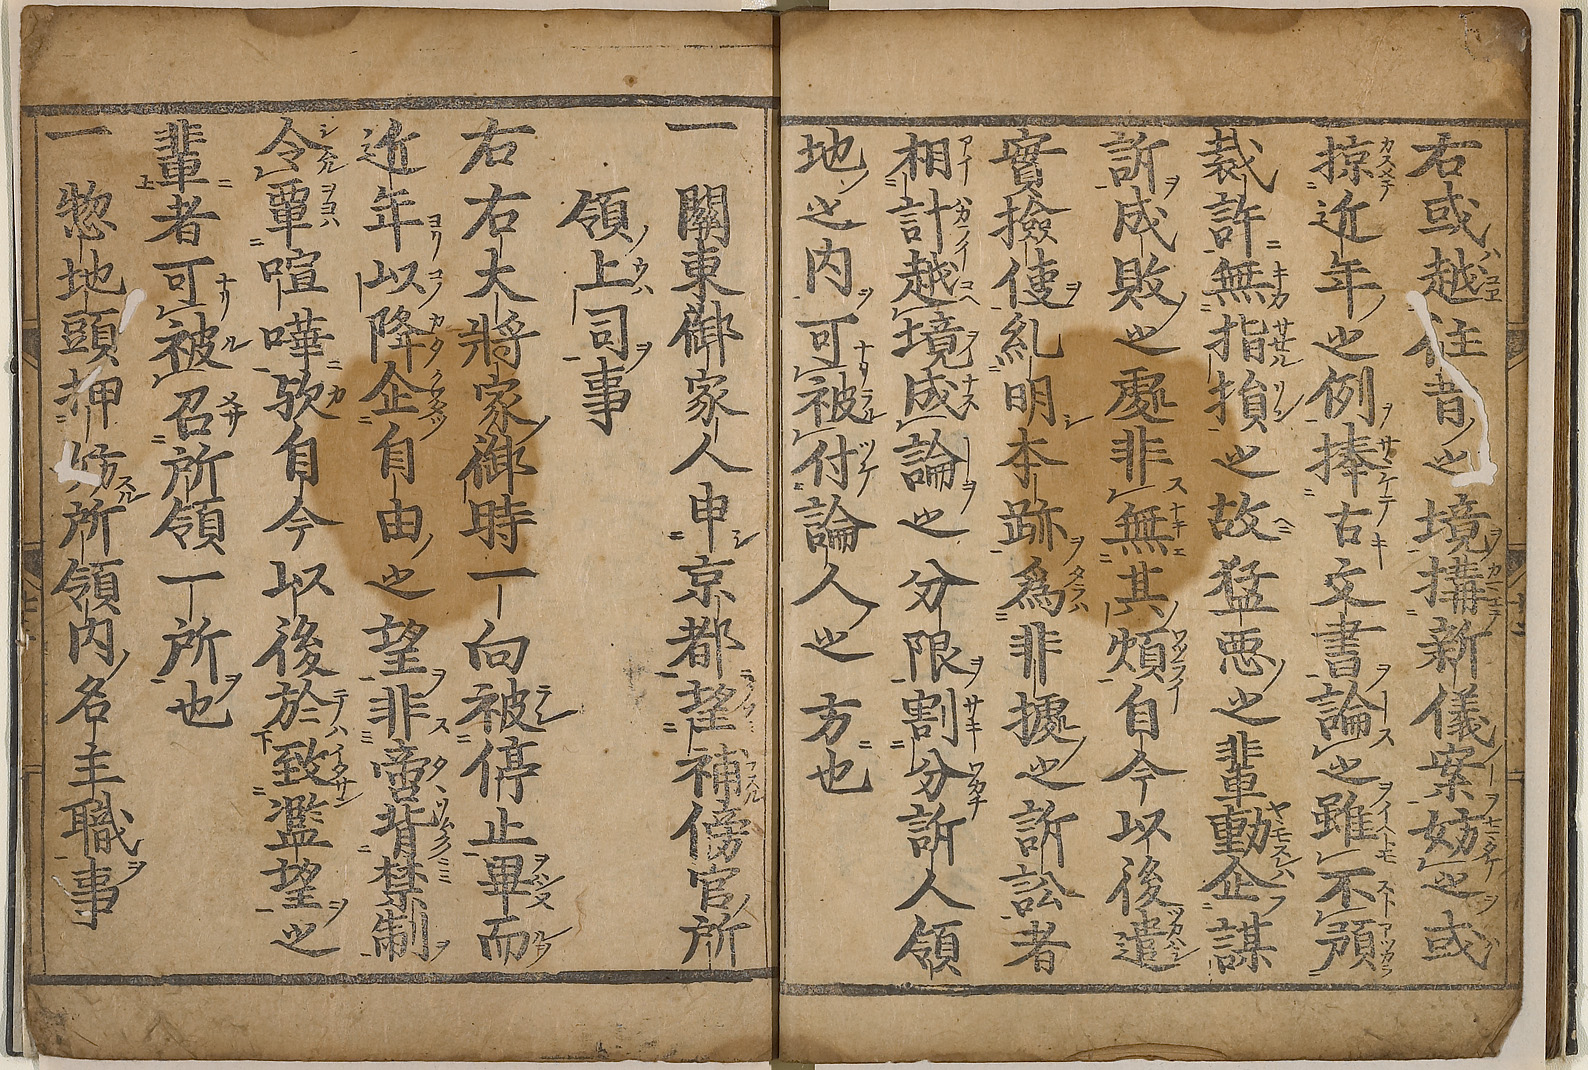 右或越往昔之境搆新儀案妨之或
掠近年之例捧古文書論之雖不預
裁許無指損之故猛悪之輩動企謀
訴成敗之處非無其煩自今以後遣
實撿使糺明本跡爲非㨿之訴訟者
相計越境成論之分限割分訴人領
地之内可被付論人之方也
一 關東御家人申京都望補傍官所
領上司事
右右大將家御時一向被停止畢而
近年以降企自由之望非啻背禁制
令覃喧嘩歟自今以後於致濫望之
輩者可被召所領一所也
一 惣地頭押妨所領内名主職事